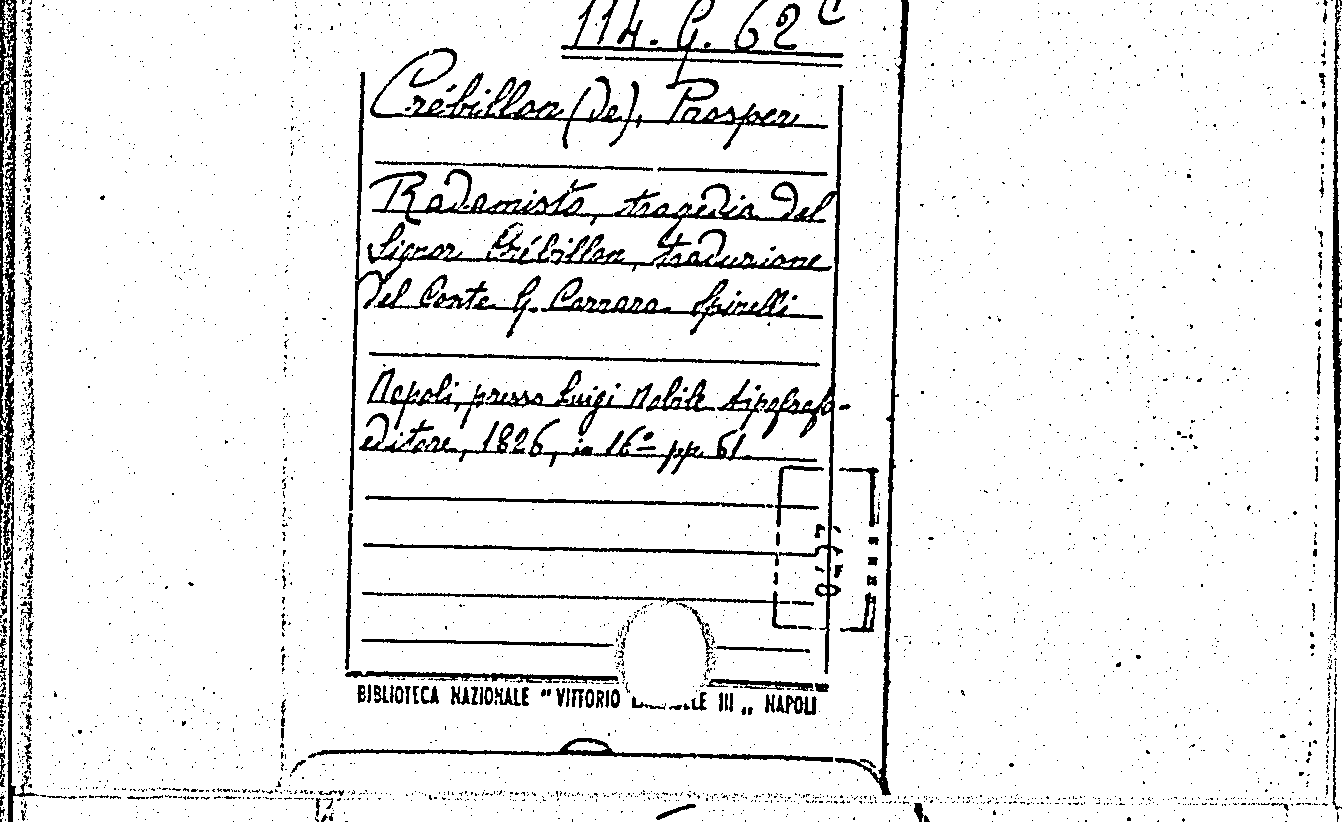 114. G. 62 C
Crébillon (de), Prosper
Radamisto, tragedia del
Signor Crébillon, traduzione
del Conte G. Carrara-Spinelli
Napoli, presso Luigi Nobile tipografo-
editore, 1826, in 16° pp. 61.
BIBLIOTECA NAZIONALE " VITTORIO III „ NAPOLI